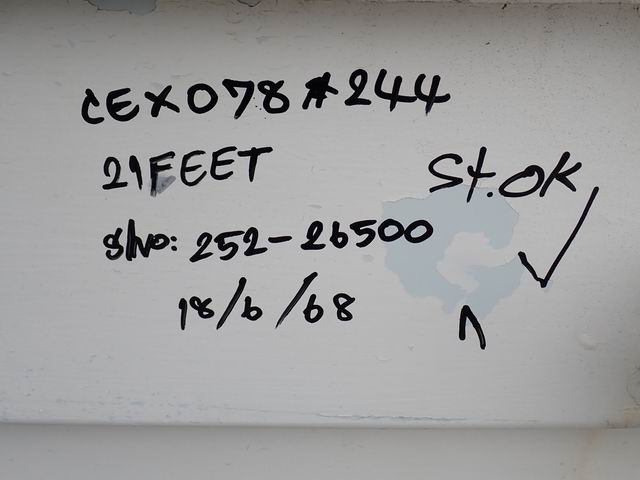 CEX078#244
21FEET
St.OK
S/No: 252-26500
18/6/68